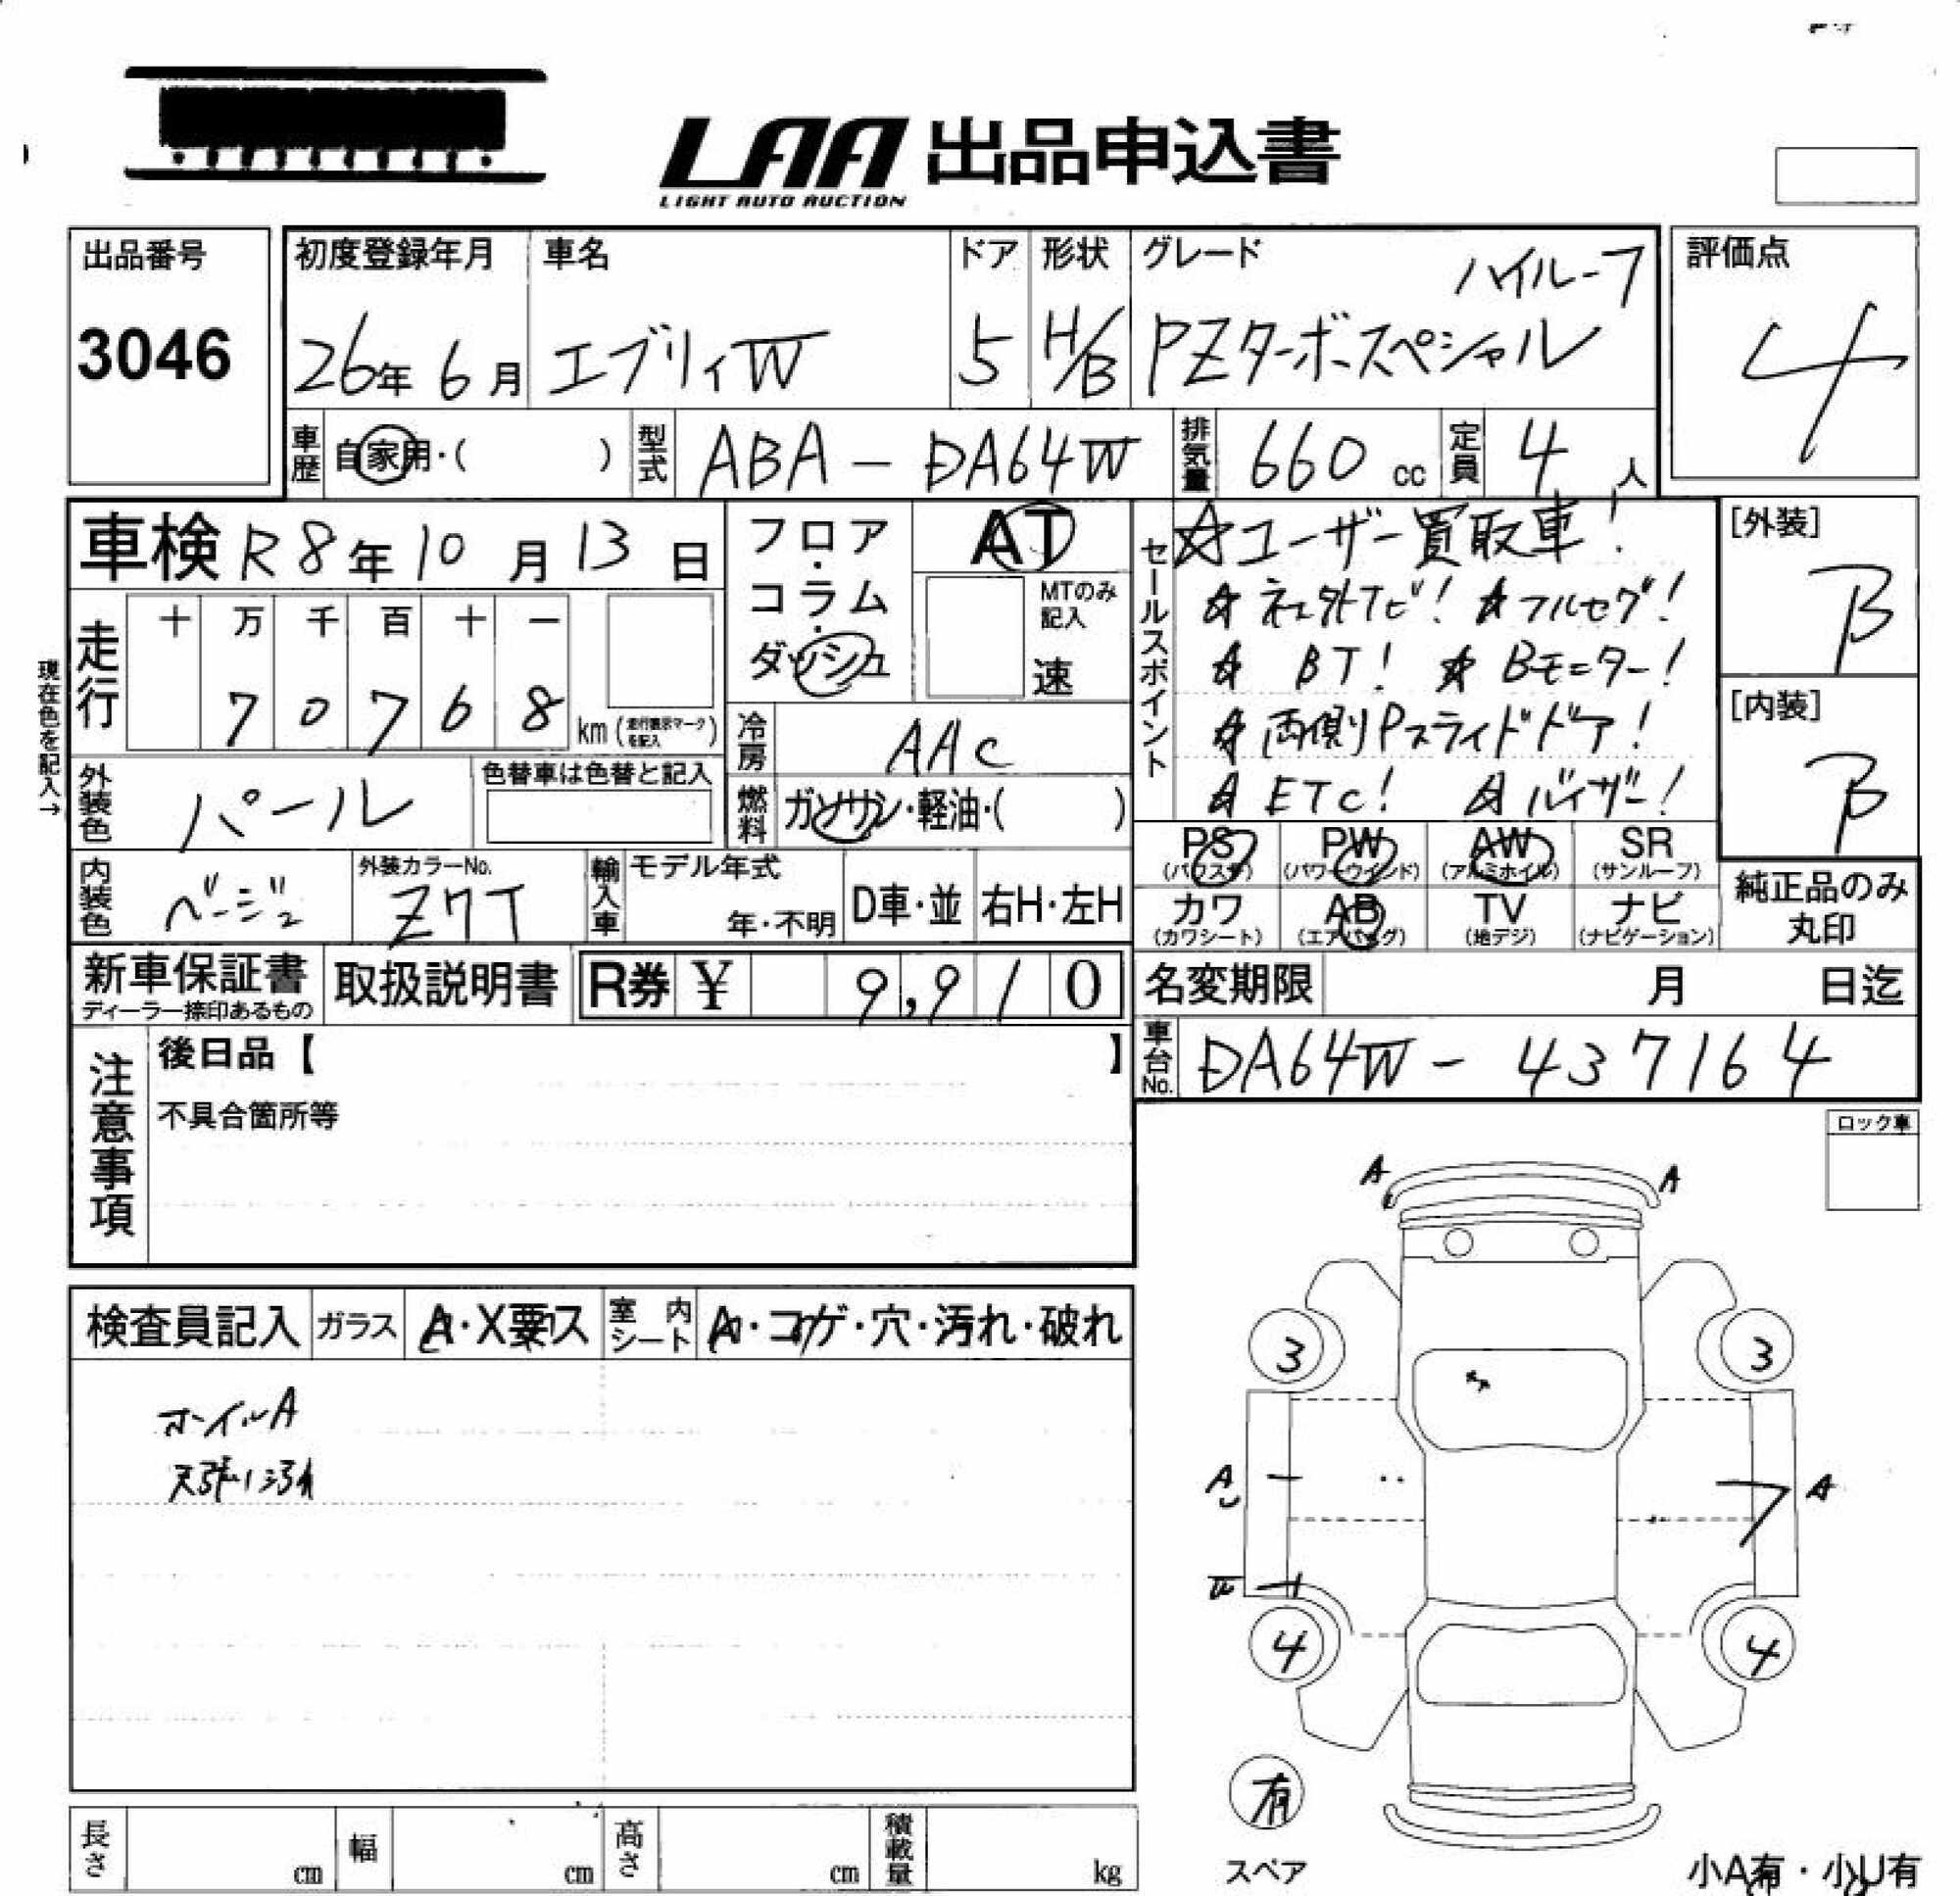 LAA 出品申込書
LIGHT AUTO AUCTION
出品番号
3046
初度登録年月
26年 6月
車名
エブリィW
ドア
5
形状
H/B
グレード
ハイルーフ
PZターボスペシャル
評価点
4
車歴
自家用・( )
型式
ABA-DA64W
排気量
660 cc
定員
4 人
車検 R8年10月13日
フロア・コラム・ダッシュ
AT
MTのみ記入
速
セールスポイント
☆ユーザー買取車!
☆社外ナビ! ☆フルセグ!
☆BT! ☆Bモニター!
☆両側Pスライドドア!
☆ETC! ☆バイザー!
[外装]
B
[内装]
B
現在色を記入→
走行
十 万 千 百 十 一
7 0 7 6 8
km (走行表示マークを記入)
冷房
AAC
外装色
パール
色替車は色替と記入
燃料
ガソリン・軽油・( )
PS
(パワステ)
PW
(パワーウインド)
AW
(アルミホイル)
SR
(サンルーフ)
内装色
ベージュ
外装カラーNo.
Z7T
輸入車
モデル年式
年・不明
D車・並
右H・左H
カワ
(カワシート)
AB
(エアバッグ)
TV
(地デジ)
ナビ
(ナビゲーション)
純正品のみ
丸印
新車保証書
ディーラー捺印あるもの
取扱説明書
R券 ¥ 9,910
名変期限
月 日迄
車台No.
DA64W-437164
注意事項
後日品【 】
不具合箇所等
ロック車
検査員記入
ガラス
A・X要ス
室内シート
A・コゲ・穴・汚れ・破れ
ホイルA
天張り汚れ
A A
3 3
A A
4 4
有
スペア
長さ
cm
幅
cm
高さ
cm
積載量
kg
小A有・小U有